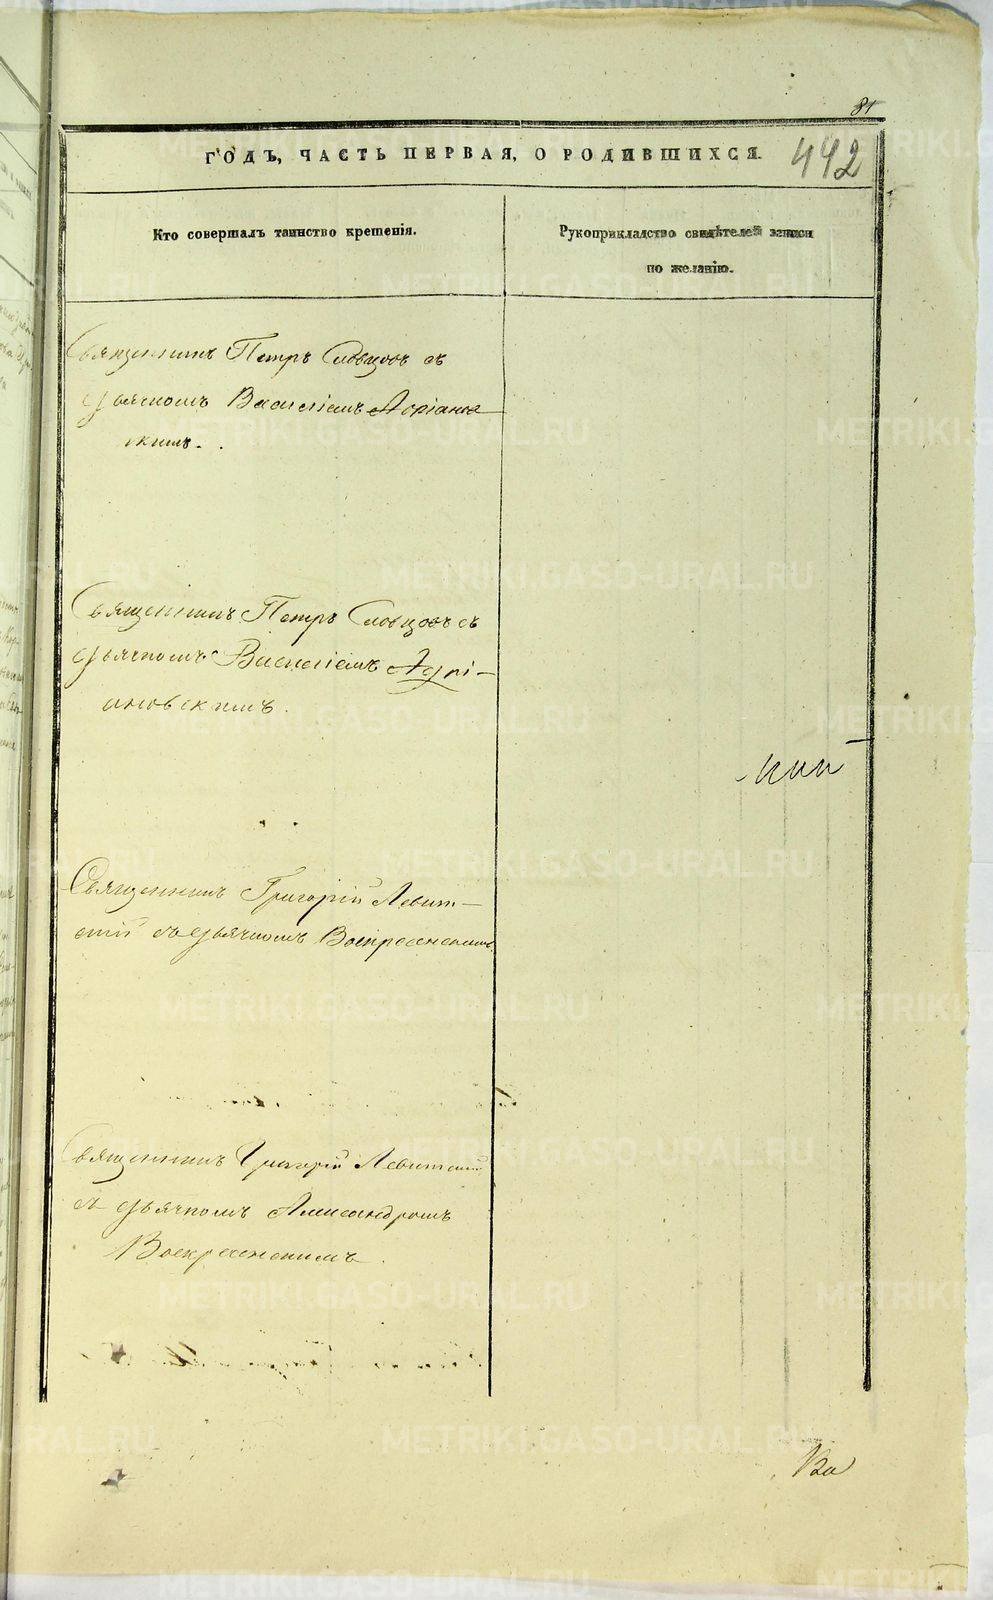 81
ГОДЪ, ЧАСТЬ ПЕРВАЯ, О РОДИВШИХСЯ.
442
Кто совершалъ таинство крещенія.
Рукоприкладство свидѣтелей записи
по желанію.
Священникъ Петръ Словцовъ съ
дьячкомъ Василіемъ Адріанов
скимъ.
Священникъ Петръ Словцовъ съ
дьячкомъ Василіемъ Адрі-
ановскимъ.
Священникъ Григорій Левит-
скій съ дьячкомъ Воскресенскимъ
Священникъ Григорій Левитскій
съ дьячкомъ Александромъ
Воскресенскимъ.
METRIKI.GASO-URAL.RU